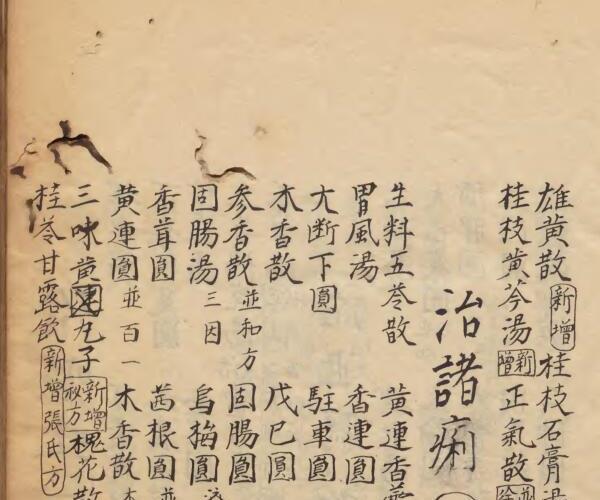 雄黄散新增桂枝石膏湯
桂枝黄芩湯新增正氣散
治諸痢
生料五苓散黄連香薷
胃風湯香連圓
大断下圓駐車圓
木香散戊巳圓
参香散並和方固腸圓
固腸湯三因烏梅圓
香茸圓茜根圓並
黄連圓並百一木香散本
三味黄連丸子新增秘方槐花散
桂苓甘露飲新增張氏方